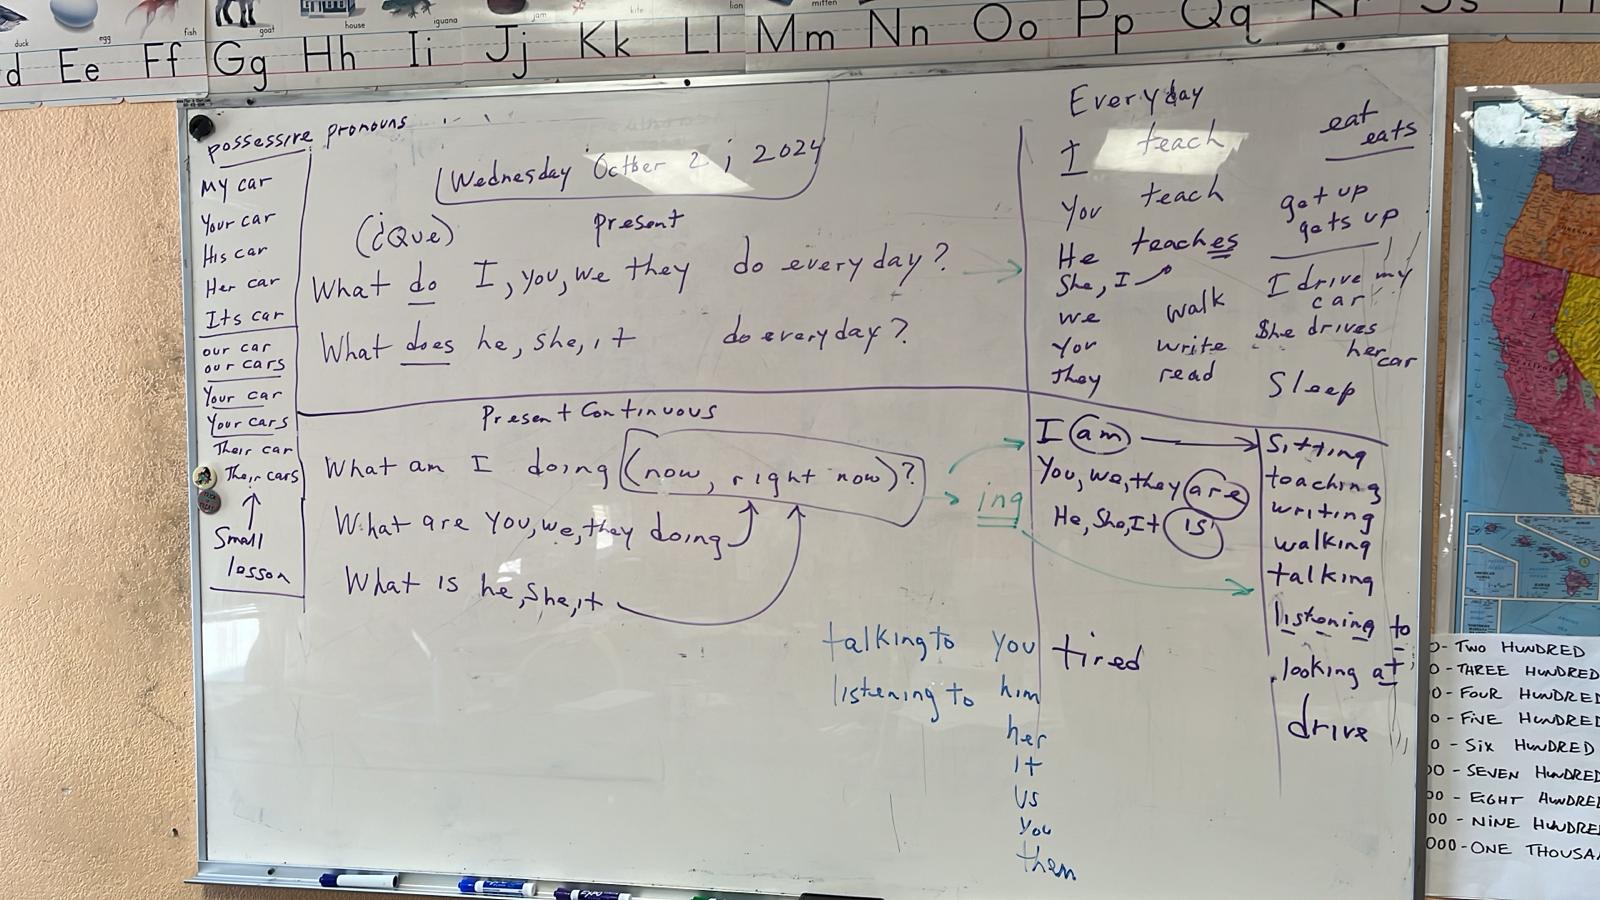 duck
egg
fish
goat
house
iguana
jam
kite
lion
mitten
d Ee Ff Gg Hh Ii Jj Kk Ll Mm Nn Oo Pp Qq
possessive pronouns
My car
Your car
His car
Her car
Its car
our car
our cars
Your car
Your cars
Their car
Their cars
Small
lesson
Wednesday Octber 2, 2024
(¿Que) Present
What do I, you, we they do everyday?
What does he, she, it do everyday?
Present Continuous
What am I doing (now, right now)?
What are You, we, they doing
What is he, she, it
ing
Everyday
I teach
You teach
He teaches
She, I
we walk
You write
They read
eat
eats
get up
gets up
I drive my
car
She drives
her car
Sleep
I am
You, we, they are
He, She, It is
Sitting
teaching
writing
walking
talking
listening to
looking at
drive
talking to you
listening to him
her
it
us
you
them
tired
0- TWO HUNDRED
0- THREE HUNDRED
0- FOUR HUNDRED
0- FIVE HUNDRED
0- SIX HUNDRED
00- SEVEN HUNDRED
00- EIGHT HUNDRED
00- NINE HUNDRED
000- ONE THOUSA